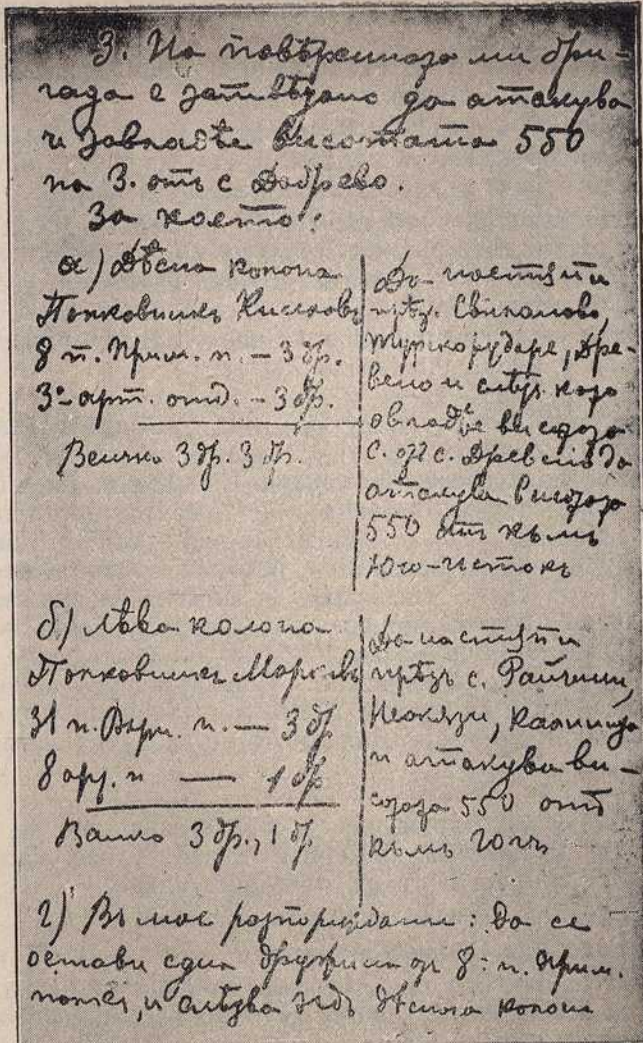 3. На повѣрената ми бри-
гада е заповѣдано да атакува
и завладѣе височината 550
на З. отъ с. Добрево.
За което:
а) Дѣсна колона
Полковникъ Кисьовъ
8 п. Прим. п. — 3 др.
3о арт. отд. — 3 др.
Всичко 3 др. 3 др.
Да настѫпи
прѣзъ Свиланово,
Турско рударе, Дре-
вено и слѣдъ като
овладѣе височ.
с. отъ с. Древено да
атакува височ.
550 отъ къмъ
Юго-истокъ
б) Лѣва колона
Полковникъ Марковъ
31 п. Варн. п. — 3 др
8 арт. п — 1 др
Всичко 3 др., 1 др
Да настѫпи
прѣзъ с. Райчини,
Неокази,
и атакува ви-
сотата 550 отъ
къмъ Югъ
г) Въ мое разпореждане: Да се
остави една дружина отъ 8: п. Прим.
полкъ, и слѣдва задъ дѣсната колона